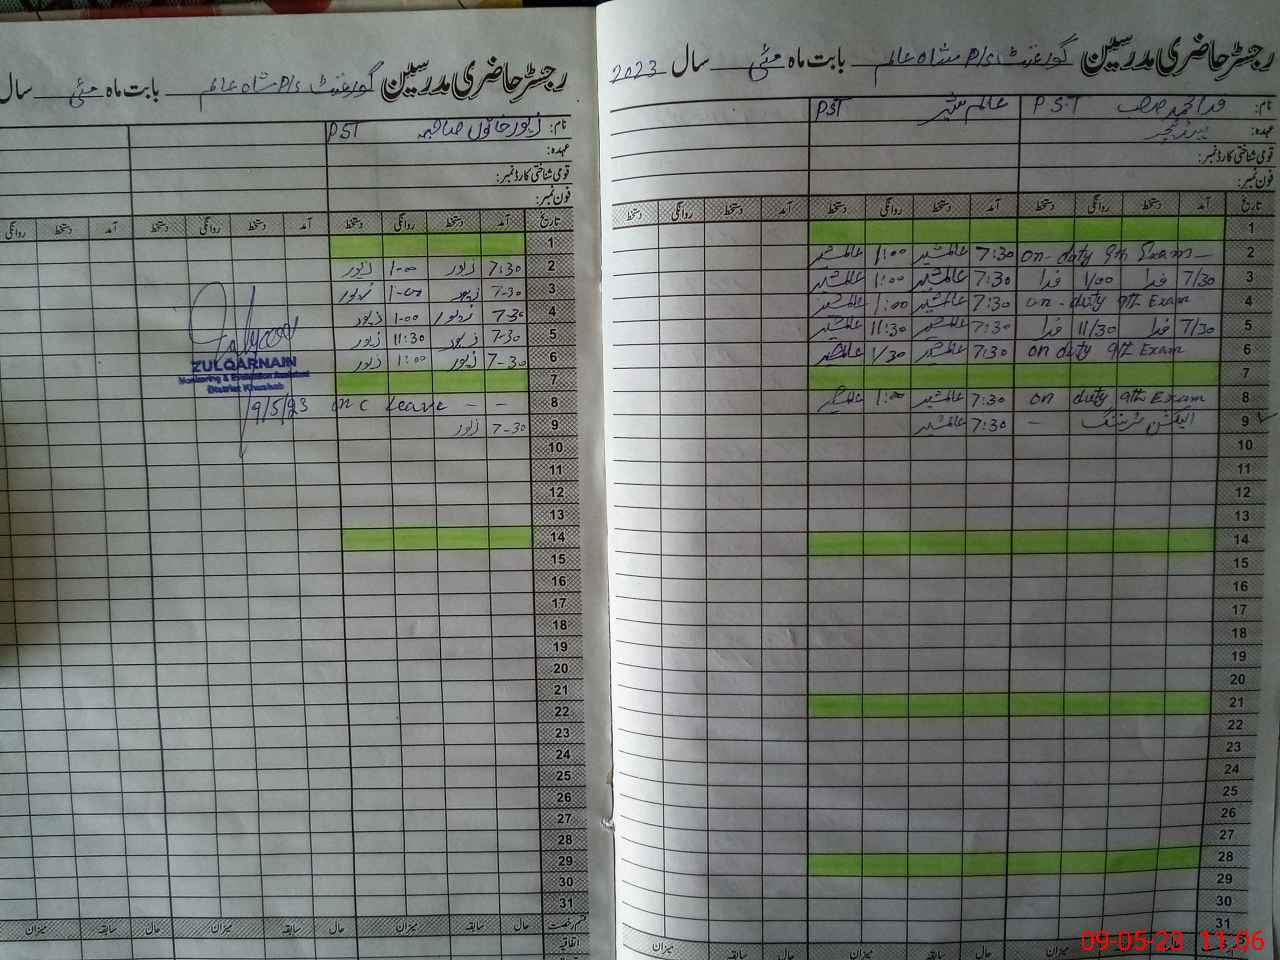 رجسٹر حاضری مدرسین گورنمنٹ P/s شاہ عالم بابت ماہ مئی سال 2023
نام: فدا محمد PST عالم شیر PST
عہدہ:
قومی شناختی کارڈ نمبر:
فون نمبر:
تاریخ آمد دستخط روانگی دستخط آمد دستخط روانگی دستخط آمد دستخط روانگی دستخط
1
2 on-duty 9th Exam 7:30 عالمشیر 1:00 عالمشیر
3 7/30 فدا 1/00 فدا 7:30 عالمشیر 1:00 عالمشیر
4 on-duty 9th Exam 7:30 عالمشیر 1:00 عالمشیر
5 7/30 فدا 11/30 فدا 7:30 عالمشیر 11:30 عالمشیر
6 on duty 9th Exam 7:30 عالمشیر 1/30 عالمشیر
7
8 on duty 9th Exam 7:30 عالمشیر 1:00 عالمشیر
9 الیکشن ٹریننگ - 7:30 عالمشیر
10
11
12
13
14
15
16
17
18
19
20
21
22
23
24
25
26
27
28
29
30
31
میزان سابقہ حال میزان
09-05-23 11:06
رجسٹر حاضری مدرسین گورنمنٹ P/s شاہ عالم بابت ماہ مئی سال
نام: زیور خاتون صاحبہ PST
عہدہ:
قومی شناختی کارڈ نمبر:
فون نمبر:
تاریخ آمد دستخط روانگی دستخط آمد دستخط روانگی دستخط آمد دستخط روانگی
1
2 7:30 زیور 1-00 زیور
3 7-30 زیور 1-00 زیور
4 7-30 زیور 1-00 زیور
5 7-30 زیور 11:30 زیور
6 7-30 زیور 1:00 زیور
7
8 on c Leave - -
9 7-30 زیور
10
11
12
13
14
15
16
17
18
19
20
21
22
23
24
25
26
27
28
29
30
31
قسم رخصت حال سابقہ میزان حال سابقہ میزان حال سابقہ میزان
اتفاقیہ
ZULQARNAIN
Monitoring & Evaluation Assistant
District Khushab
9/5/23